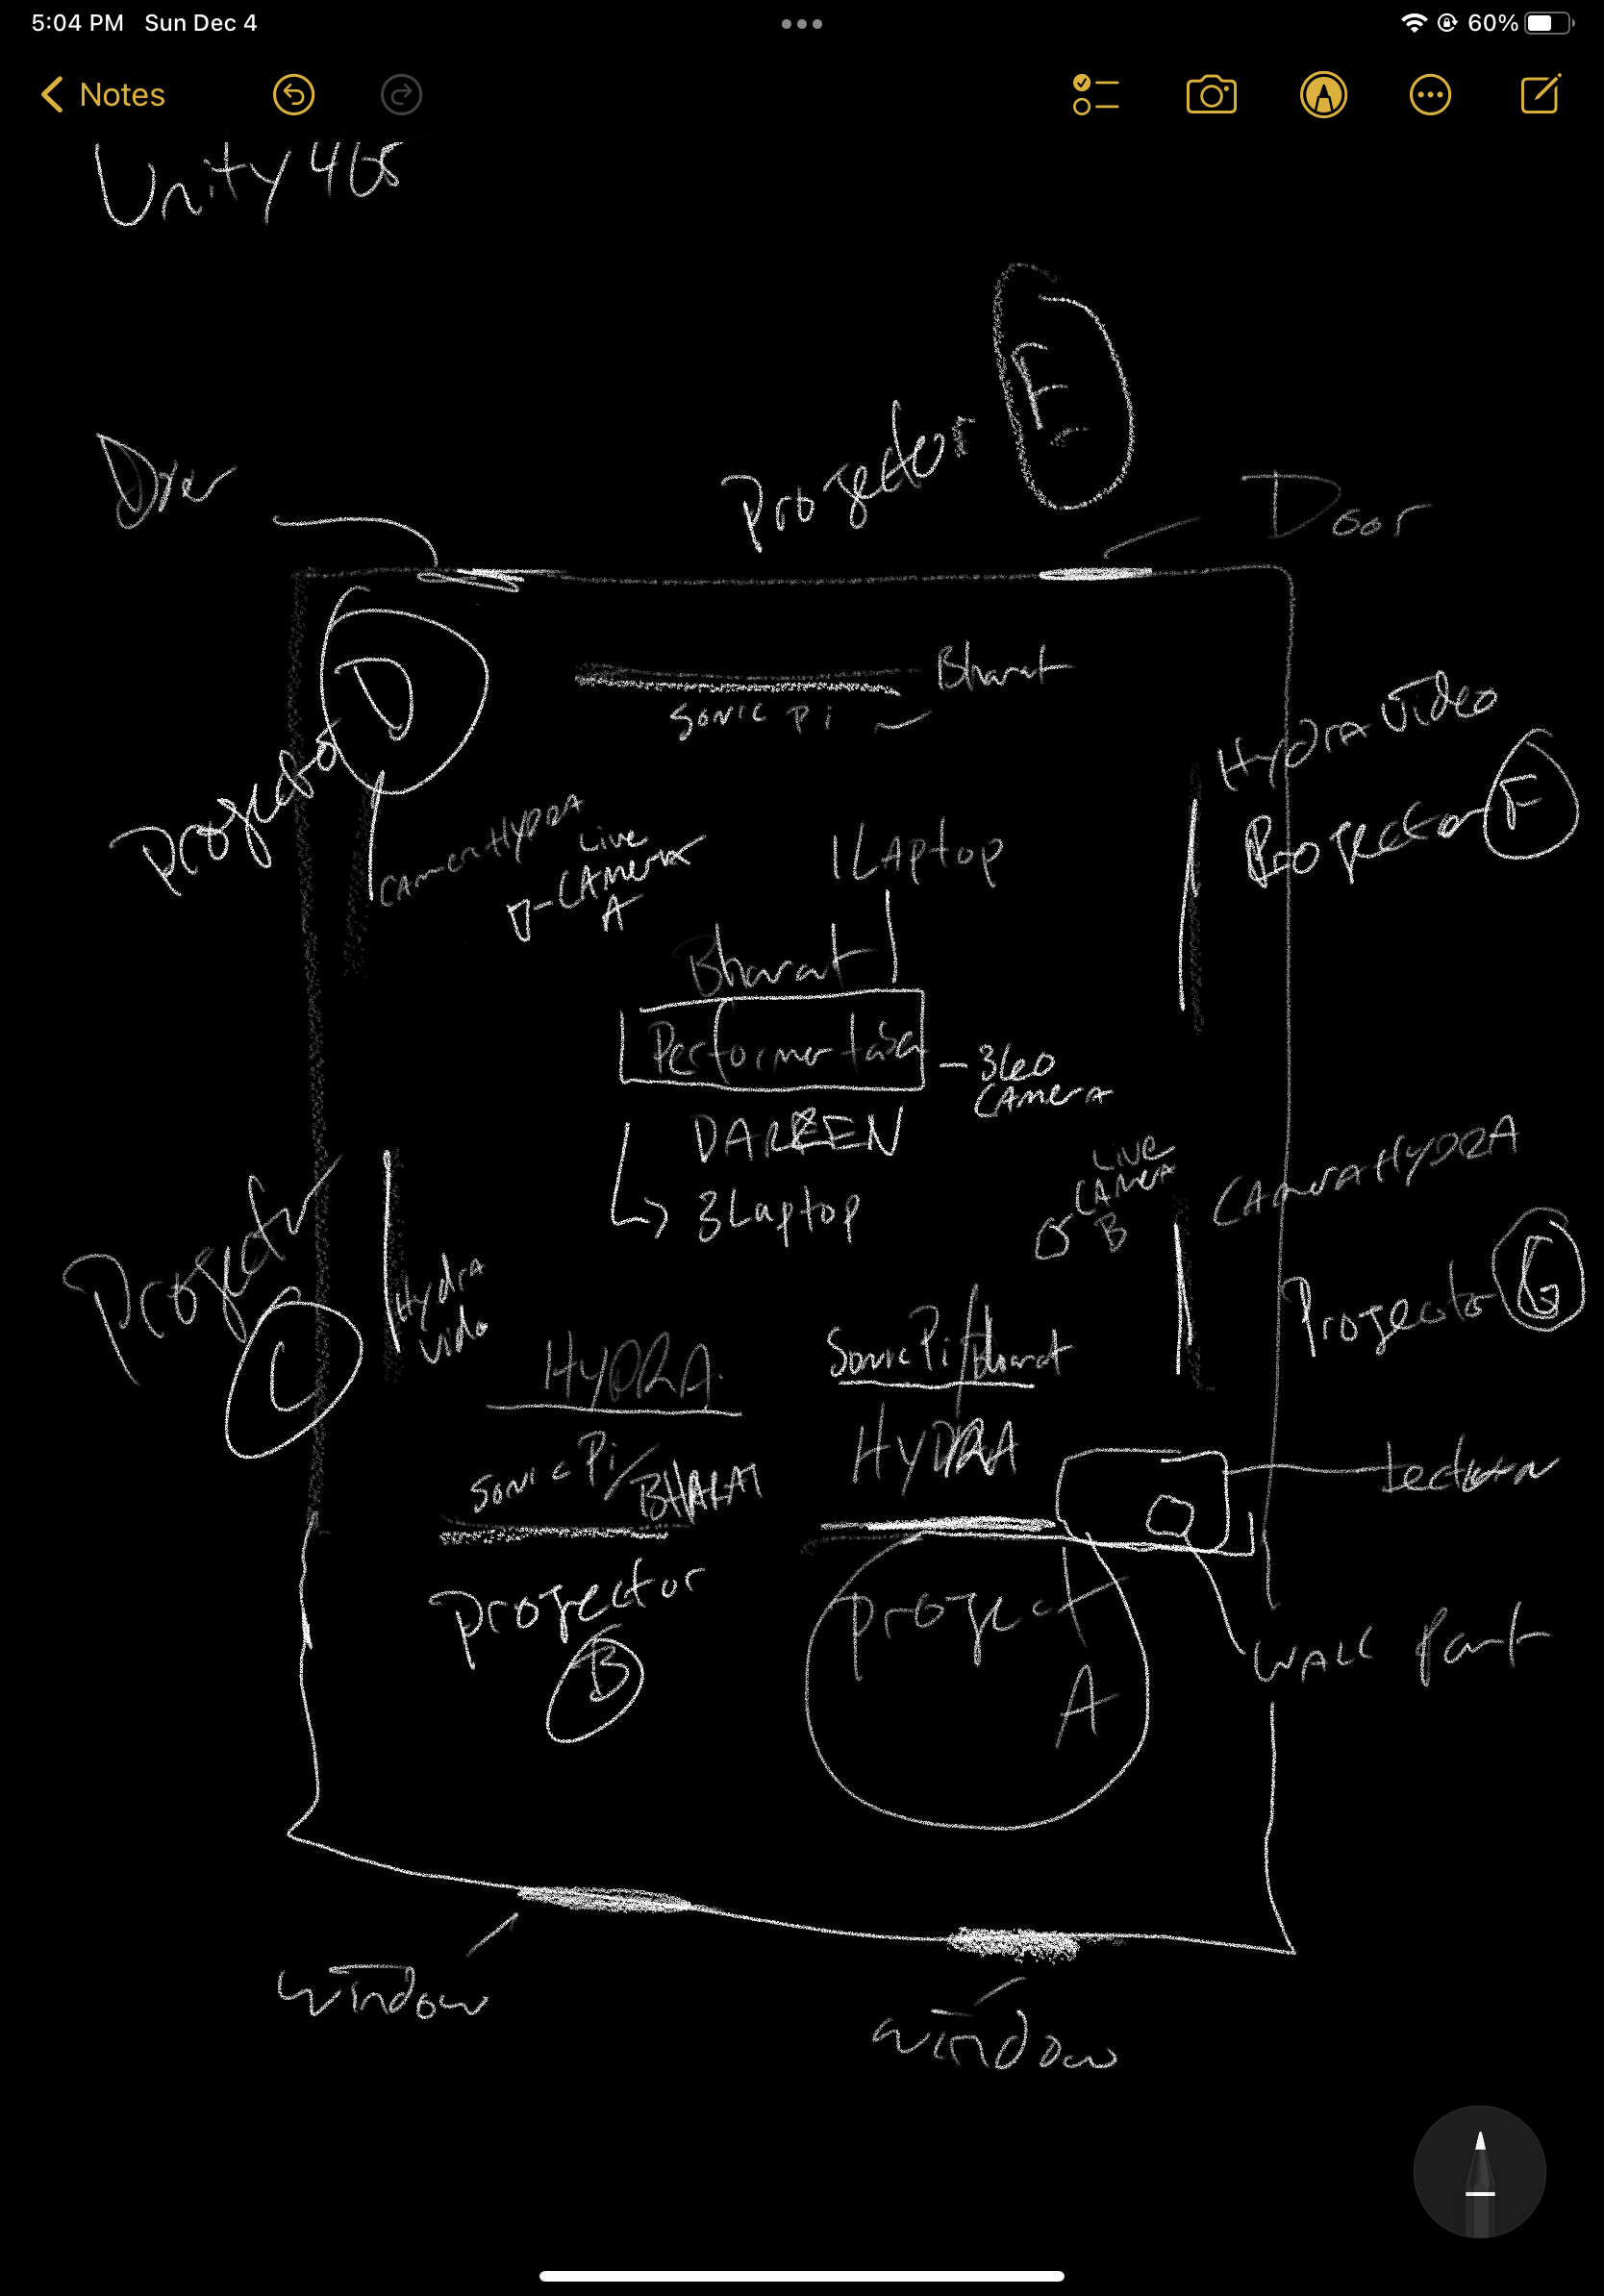 5:04 PM Sun Dec 4
60%
Notes
Unity 465
E
Projector
Door
Door
Bharat
Sonic Pi
D
Projector
Hydra Video
Projector F
Camera HYDRA
Live
Camera
A
1 Laptop
Bharat
Performer
360
Camera
DARREN
3 Laptop
Live
Camera
B
Camera HYDRA
Projector G
Projector
C
Hydra
HYDRA
Sonic Pi/Bharat
Sonic Pi/BHARAT
HYDRA
Projector
B
Project
A
Wall
Window
Window